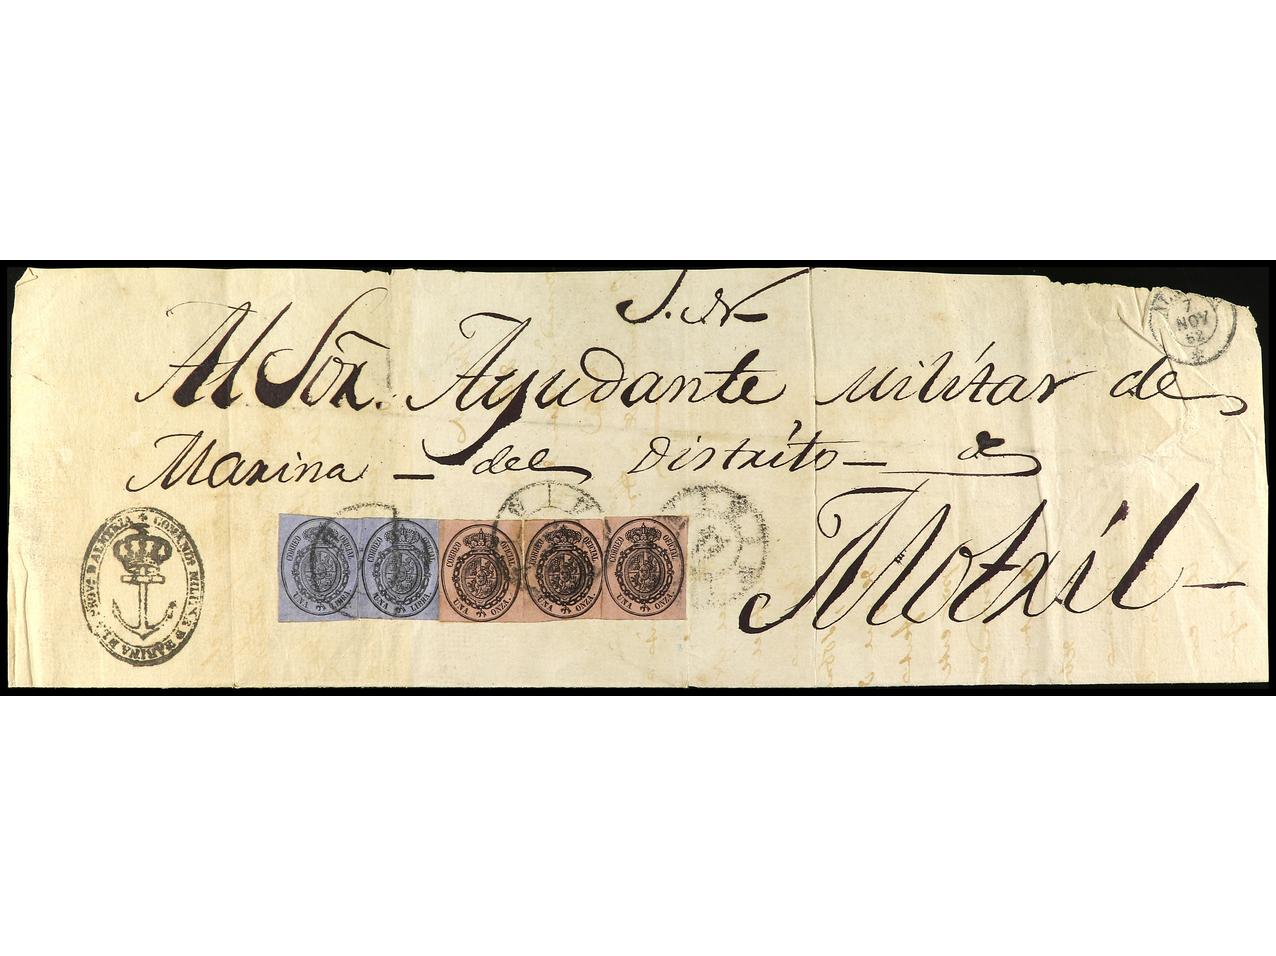 S. N.
Al Sōr. Ayudante Militar de
Marina del Distrito de
Motril
7
NOV
62
COMANDª MILITAR D MARINA D LA PROVª D ALMERIA
CORREO OFICIAL
UNA LIBRA.
CORREO OFICIAL
UNA LIBRA.
CORREO OFICIAL
UNA ONZA.
CORREO OFICIAL
UNA ONZA.
CORREO OFICIAL
UNA ONZA.